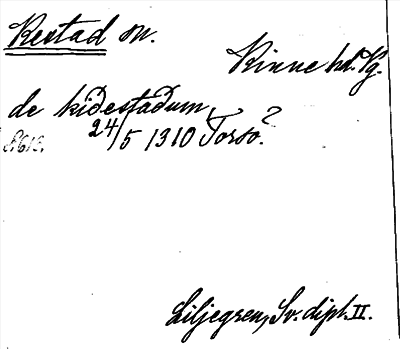 Kestad sn.
Kinne hd. Vg.
de kiðestaðum,
24/5 1310 Torsö?
Liljegren, Sv. dipl. II.